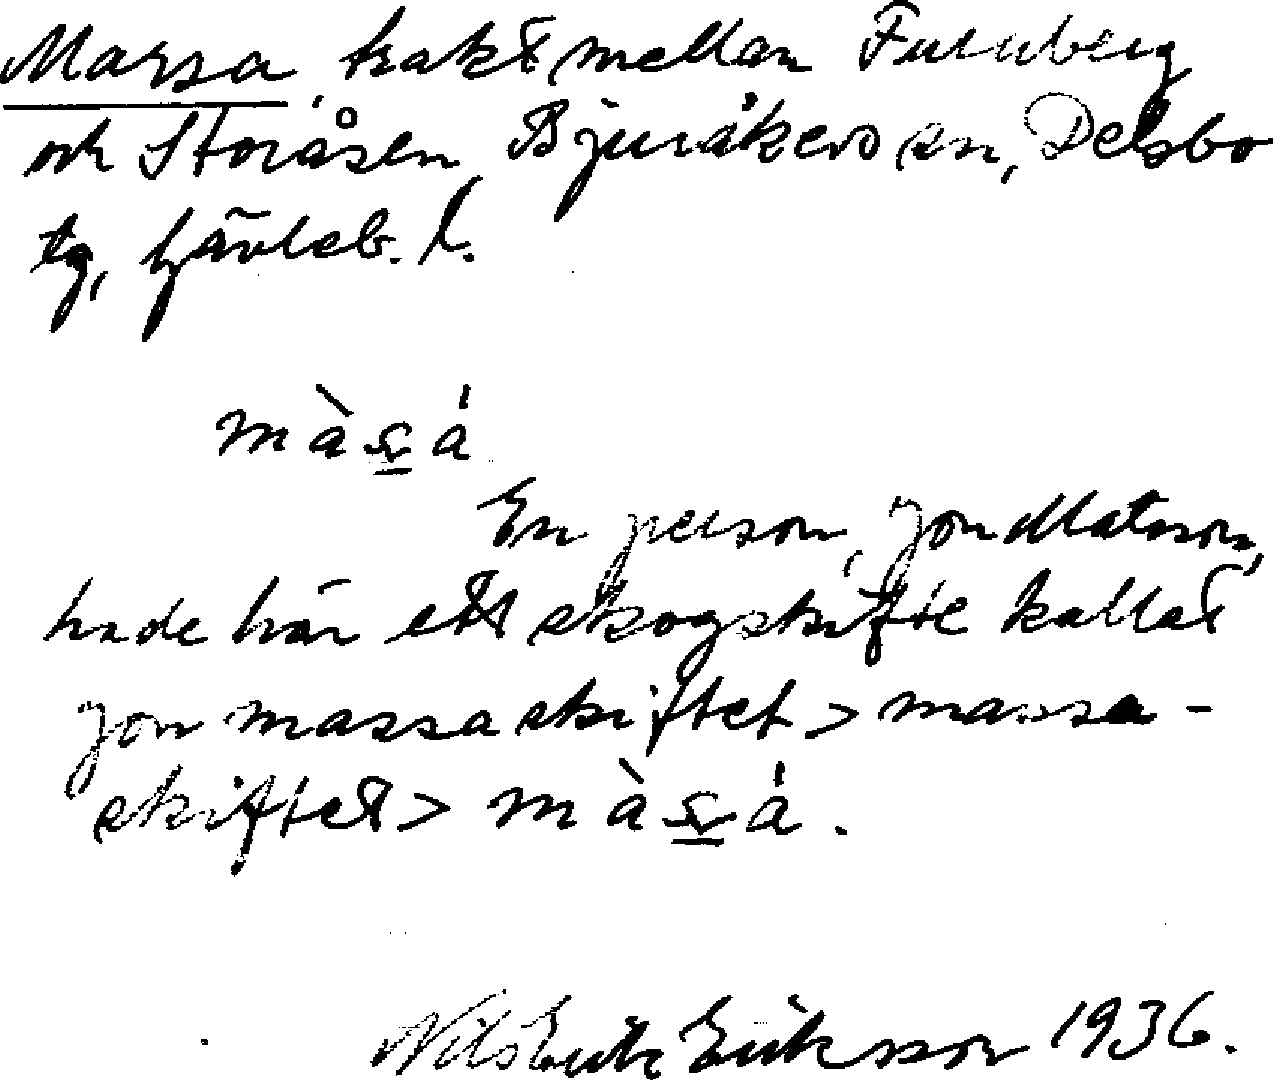 Marsa, trakt mellan Furuberg
och Storåsen, Bjuråkers sn, Delsbo
tg, Gävleb. l.
màs̱á
En person, Jon Matsson,
hade här ett skogskifte kallat
Jon massaskiftet > massa-
skiftet > màs̱á.
Nils Erik Eriksson 1936.